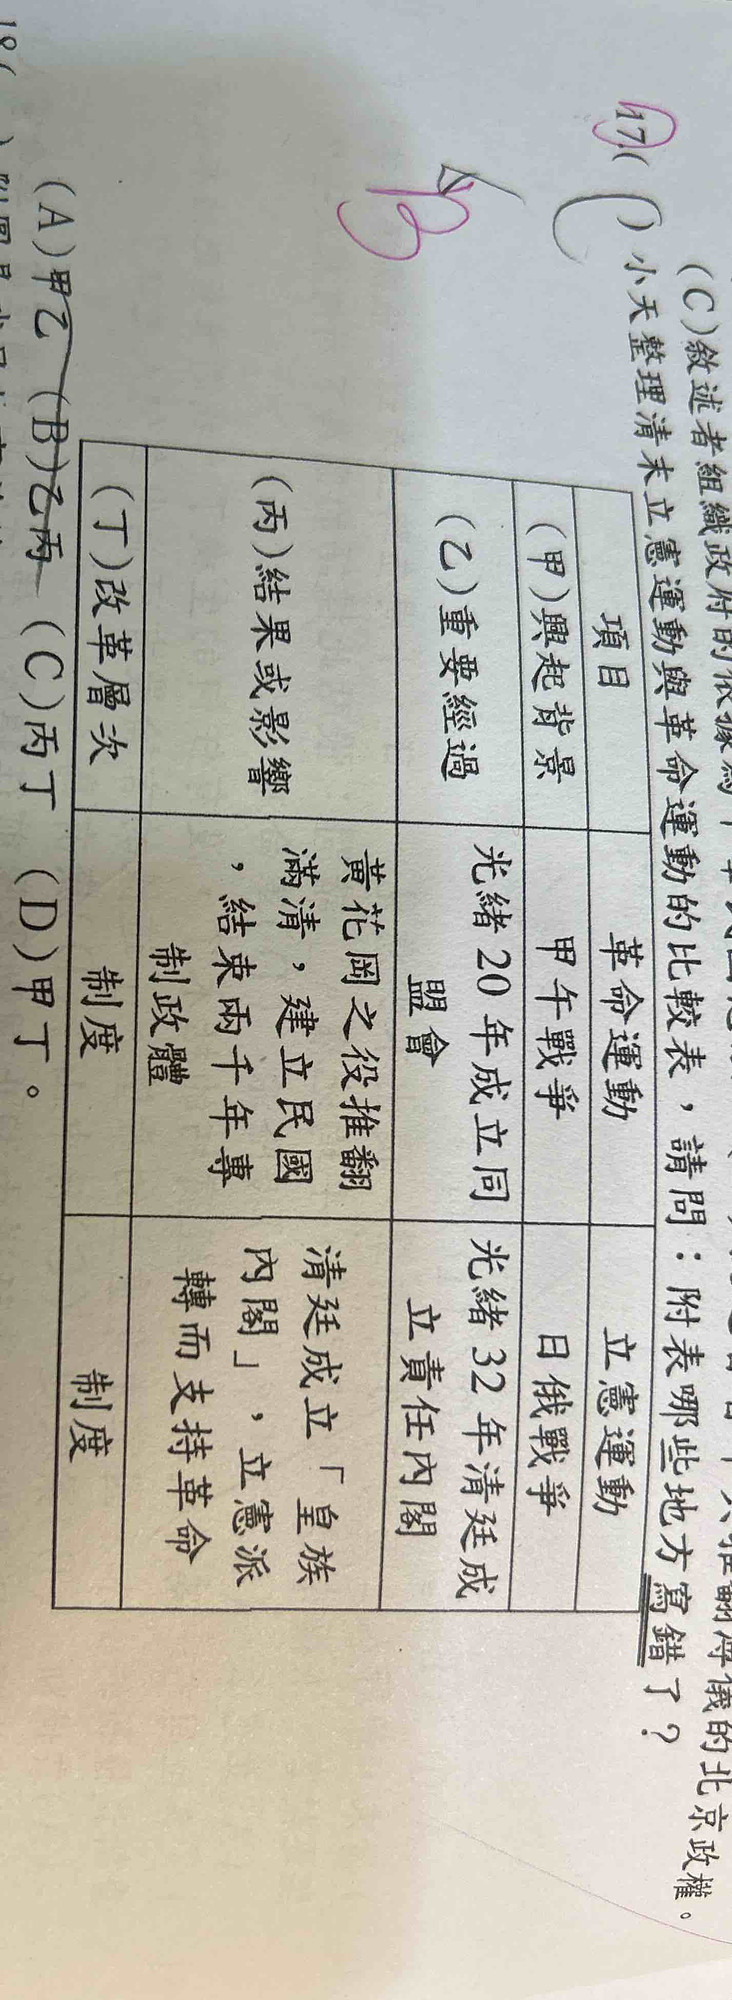 (C)敘述者組織政府的依據為
儀的北京政權。
17.( )小天整理清末立憲運動與革命運動的比較表，請問：附表哪些地方寫錯了？
C
B
項目 革命運動 立憲運動
(甲)興起背景 甲午戰爭 日俄戰爭
(乙)重要經過 光緒20年成立同盟會 光緒32年清廷成立責任內閣
(丙)結果或影響 黃花岡之役推翻滿清，建立民國，結束兩千年專制政體 清廷成立「皇族內閣」，立憲派轉而支持革命
(丁)改革層次 制度 制度
(A)甲乙 (B)乙丙 (C)丙丁 (D)甲丁。
18.( )